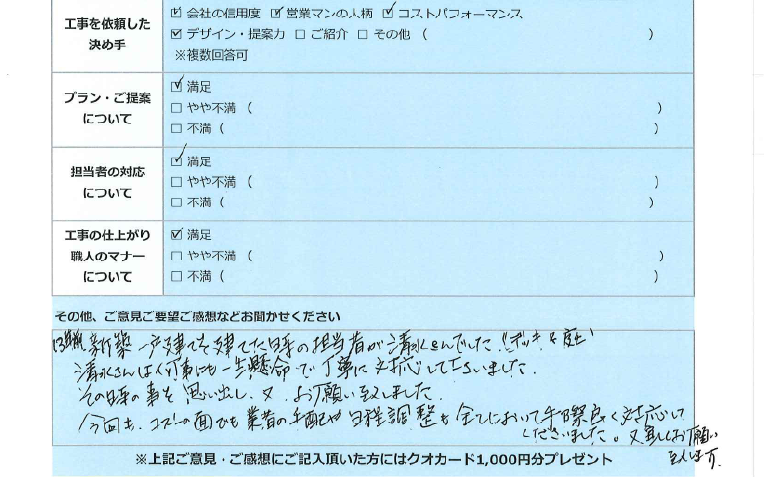 工事を依頼した
決め手
☑ 会社の信用度 ☑ 営業マンの人柄 ☑ コストパフォーマンス
☑ デザイン・提案力 □ ご紹介 □ その他 ( )
※複数回答可
プラン・ご提案
について
☑ 満足
□ やや不満 ( )
□ 不満 ( )
担当者の対応
について
☑ 満足
□ やや不満 ( )
□ 不満 ( )
工事の仕上がり
職人のマナー
について
☑ 満足
□ やや不満 ( )
□ 不満 ( )
その他、ご意見ご要望ご感想などお聞かせください
新築一戸建てを建てた時の担当者が清水さんでした
清水さんは何事にも一生懸命で丁寧に対応して下さいました。
その時の事を思い出し、又、お願い致しました。
今回も、コストの面でも業者の手配や日程調整も全てにおいて手際良く対応して
くださいました。又宜しくお願い
致します。
※上記ご意見・ご感想にご記入頂いた方にはクオカード1,000円分プレゼント